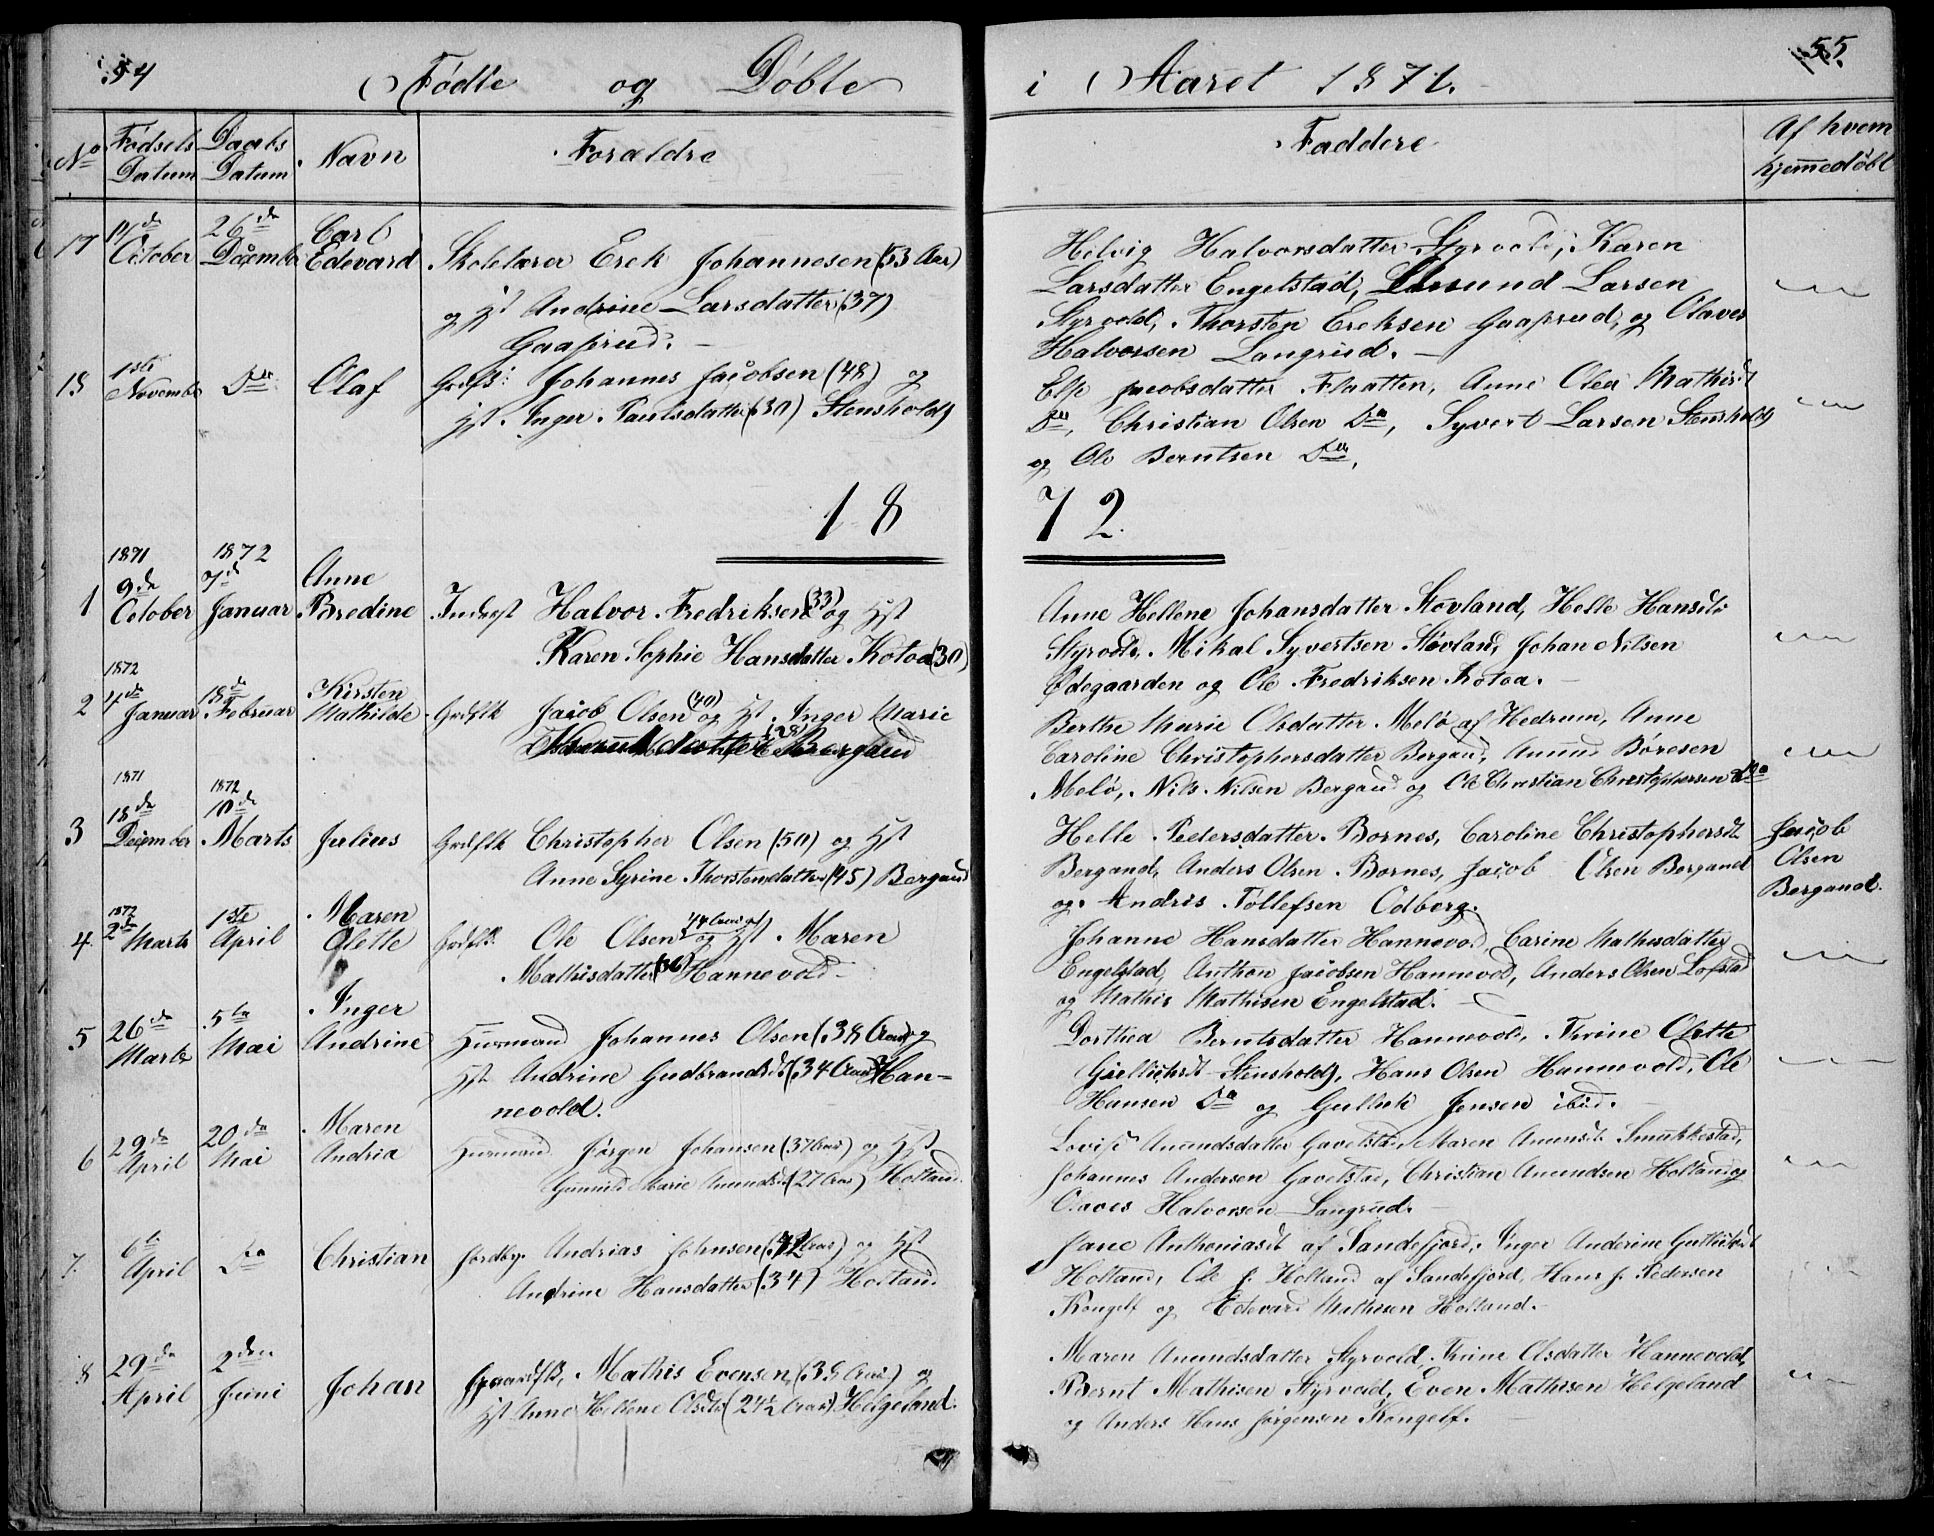 54
Födte og Döbte
i Aaret 1871.
55.
No
Födsels Datum
Daabs Datum
Navn
Foraldre
Faddere
Af hvem hjemedöbt
17 October 26de December Carl
Edevard Skolelærer Erek Johannesen (53 Aar)
og Hst Andrine Larsdatter (37)
Gaaserud.
Helvig Halvorsdatter Styrvold, Karen
Larsdatter Engelstad, Amund Larsen
Styrvold, Thorsten Ereksen Gaaserud, og Olaves
Halvorsen Langrud.
18 1ste November Do Olaf Grdfs: Johannes Jacobsen (48) og
Hst. Inger Paulsdatter (30) Stensholdt
Else Jacobsdatter Flaatten, Anne Olea Mathisdt
Do, Christian Olsen Do, Syvert Larsen Stensholdt
og Ole Berntsen Do,
18
72.
1871 1872
1 9de October 7de Januar Anne
Bredine Inderst Halvor Fredriksen (33) og Hst
Karen Sophie Hansdatter Kotoa (30)
Anne Hellene Johansdatter Stövland, Helle Hansdtr
Styrvold, Mikal Syvertsen Stövland, Johan Nilsen
Ödegaarden og Ole Fredriksen Kotoa.
1872
2 4de Januar 18de Februar Kirsten
Mathilde Grdflk Jacob Olsen (40) og Hst. Inger Marie
Amundsdatter (28) Bergand
Berthe Marie Olsdatter Melö af Hedrum, Anne
Caroline Christophersdatter Bergand, Amund Böresen
Melö, Nils Nilsen Bergand og Ole Christian Christophersen Do
1871 1872
3 18de December 10de Marts Julius Grdflk Christopher Olsen (50) og Hst
Anne Syrine Thorstensdatter (45) Bergand
Helle Pedersdatter Bornes, Caroline Christophersdt
Bergand, Anders Olsen Bornes, Jacob Olsen Bergand
og Andris Tollefsen Odberg.
Jacob
Olsen
Bergand.
1872
4. 2de Marts 1ste April Maren
Olette Grdflk. Ole Olsen (44 Aar) og Hst. Maren
Mathisdatter (36) Hannevold
Johanne Hansdatter Hannevold, Carine Mathisdatter
Engelstad, Anthon Jacobsen Hannevold, Anders Olsen Lofstad
og Mathis Mathisen Engelstad.
5 26de Marts 5te Mai Inger
Andrine Husmand Johannes Olsen (38 Aar) og
Hst. Andrine Gudbrandsdt (34 Aar) Han-
nevold.
Dorthea Berntsdatter Hannevold, Thrine Olette
Gulliksdt Stensholdt, Hans Olsen Hannevold, Ole
Hansen Do og Gullik Jensen ibid.
6 29de April 20de Mai Maren
Andria Husmand Jörgen Johansen (37 Aar) og Hst
Gunnild Marie Amundsdt (27 Aar) Holtand.
Lovise Amundsdatter Gavelstad, Maren Amundsdt Smukkestad,
Johannes Andersen Gavelstad, Christian Amundsen Holtand og
Olaves Halvorsen Langrud.
7. 6te April Do Christian Jordbr. Andrias Johnsen (42 Aar) og Hst
Andrine Hansdatter (34) Holtand.
Jane Anthoniasdt af Sandefjord, Inger Anderine Gulliksdt
Holtand, Ole J. Holtand af Sandefjord, Hans J. Pedersen
Kongelf og Edevard Mathisen Holtand.
8 29de April 2den Juni Johan Gaardflk, Mathis Evensen (35 Aar) og
Hst Anne Hellene Olsdtr (24½ Aar) Helgeland.
Maren Amundsdatter Styrvold, Trine Olsdatter Hannevold,
Bernt Mathisen Styrvold, Even Mathisen Helgeland
og Anders Hans Jörgensen Kongelf.